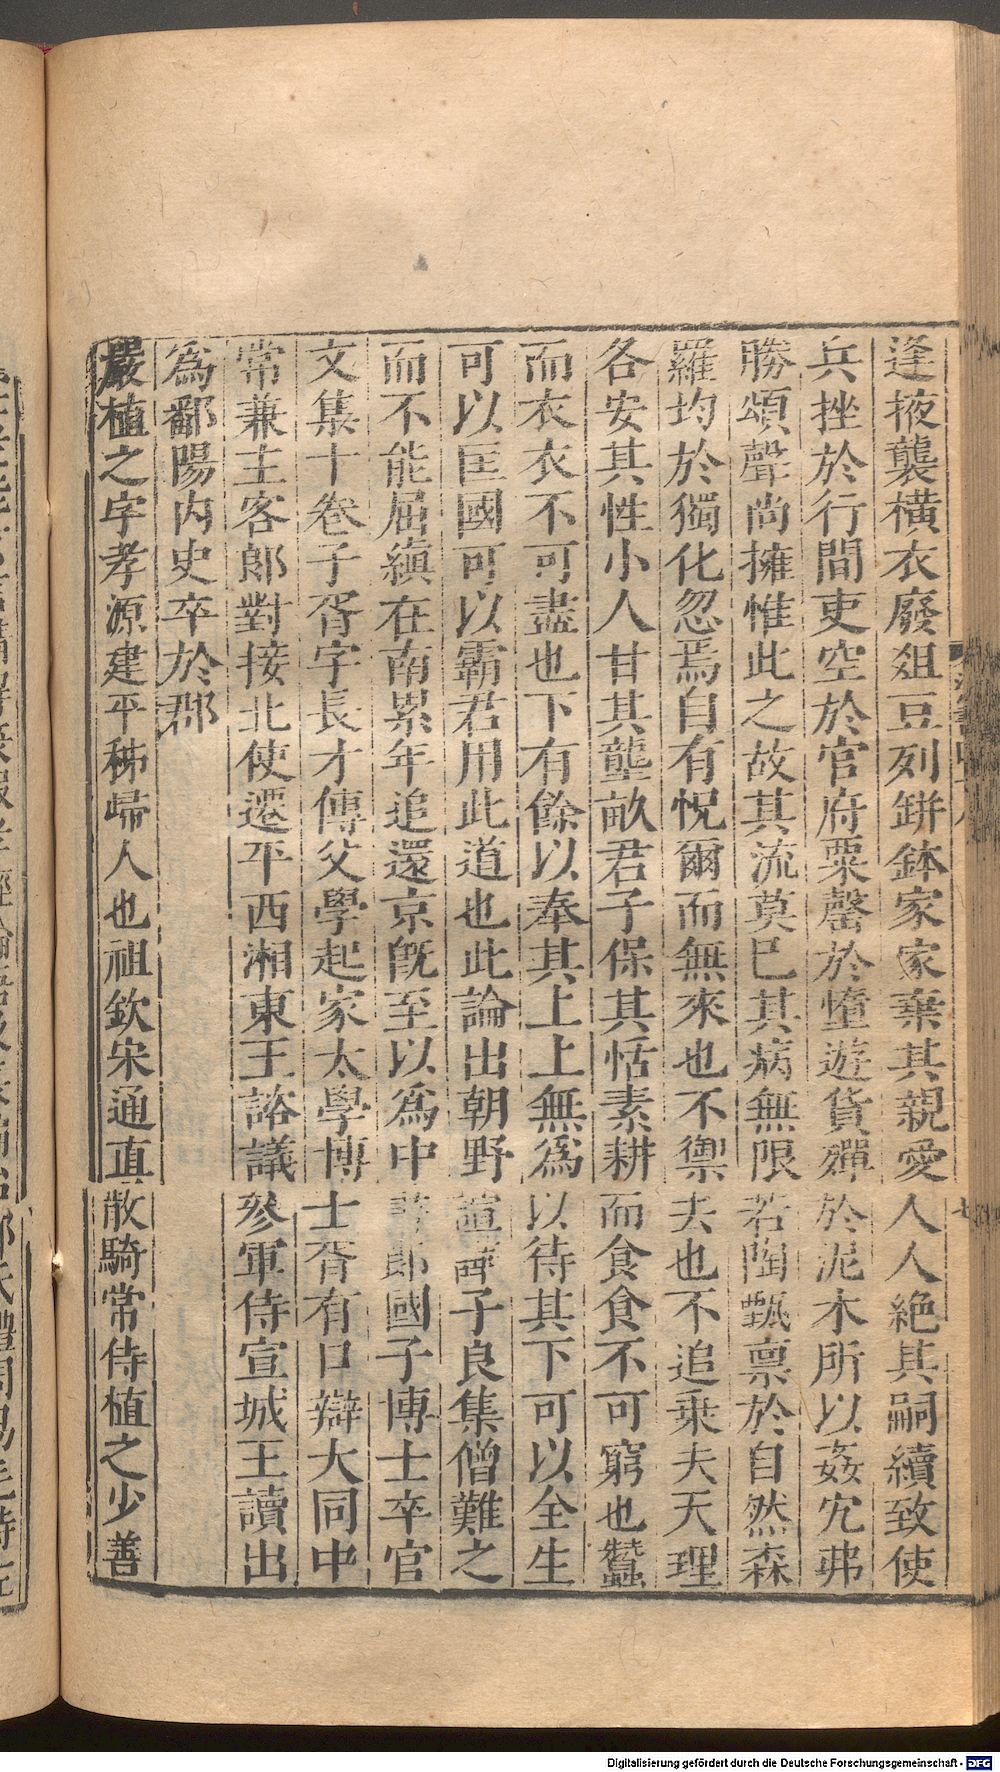 逢掖襲橫衣廢俎豆列缾鉢家家棄其親愛人人絶其嗣續致使
兵挫於行間吏空於官府粟罄於墯遊貨殫於泥木所以姦宄弗
勝頌聲尚擁惟此之故其流莫已其病無限若陶甄禀於自然森
羅均於獨化忽焉自有怳爾而無來也不禦去也不追乗夫天理
各安其性小人甘其壟畝君子保其恬素耕而食食不可窮也蠶
而衣衣不可盡也下有餘以奉其上上無爲以待其下可以全生
可以匡國可以霸君用此道也此論出朝野諠譁子良集僧難之
而不能屈縝在南累年追還京旣至以爲中書郎國子博士卒官
文集十卷子胥字長才傳父學起家太學博士胥有口辯大同中
常兼主客郎對接北使遷平西湘東王諮議參軍侍宣城王讀出
為鄱陽内史卒於郡
嚴植之字孝源建平秭歸人也祖欽宋通直散騎常侍植之少善
七
Digitalisierung gefördert durch die Deutsche Forschungsgemeinschaft - DFG